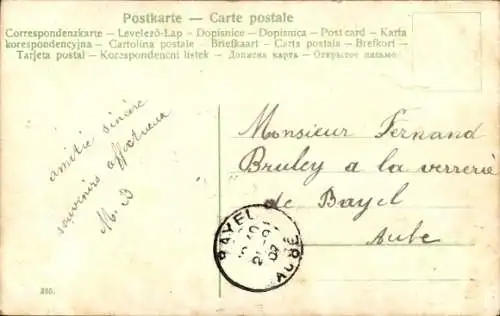 Postkarte — Carte postale
Correspondenzkarte — Levelező-Lap — Dopisnice — Dopisnica — Post card — Karta
korespondencyjna — Cartolina postale — Briefkaart — Carta postala — Brefkort —
Tarjeta postal — Korespondencni listek — Дописна карта — Открытое письмо
amitié sincère
souvenirs affectueux
M. B
Monsieur Fernand
Bruley a la verrerie
de Bayel
Aube
BAYEL
AUBE
250.